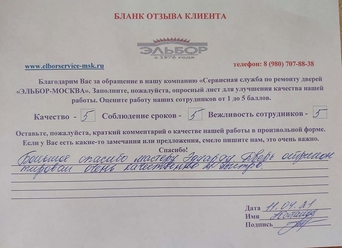 БЛАНК ОТЗЫВА КЛИЕНТА
ЭЛЬБОР
с 1976 года
www.elborservice-msk.ru
телефон: 8 (980) 707-88-38
Благодарим Вас за обращение в нашу компанию «Сервисная служба по ремонту дверей
«ЭЛЬБОР-МОСКВА». Заполните, пожалуйста, опросный лист для улучшения качества нашей
работы. Оцените работу наших сотрудников от 1 до 5 баллов.
Качество - 5 Соблюдение сроков - 5 Вежливость сотрудников - 5
Оставьте, пожалуйста, краткий комментарий о качестве нашей работы в произвольной форме.
Если у Вас есть какие-то замечания или предложения, смело пишите нам, это очень важно.
Спасибо!
Большое спасибо мастеру дверь
очень качественно и быстро
Дата 11.04.21
Имя
Подпись